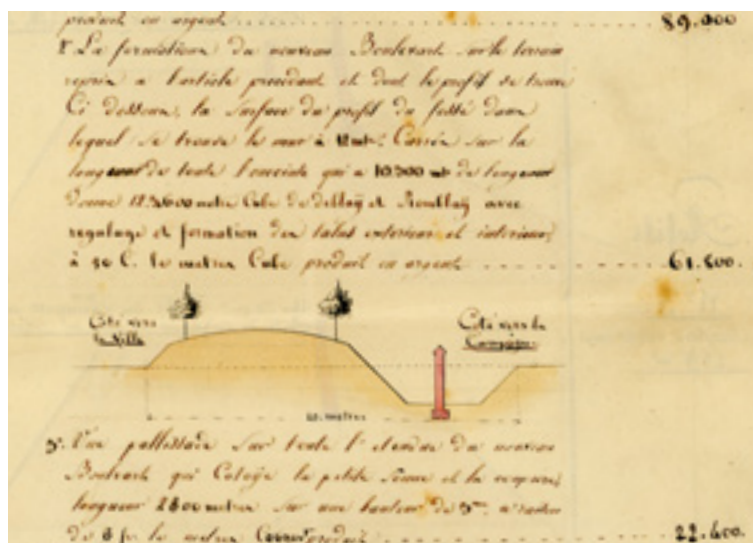 produit en argent 89.000
2° La formation du nouveau Boulevart sur le terrain
repris a l'article precedent et dont le profil se trouve
Ci dessous, la surface du profil du fossé dans
lequel se trouve le mur à 12 mt. Carrés sur la
longueur de toute l'enceinte qui a 10.300 mt de longueur
donne 123.600 metre Cube de deblay et Remblay avec
regalage et formation des talus exterieur et interieur,
à 50 C. le metres Cube produit en argent 61.800.
Coté vers la Ville
Coté vers la Campagne
metres
3° Une pallissade sur toute l'etendue du nouveau
Boulevart qui Cotoye la petite Senne et la
longueur 2800 metres sur une hauteur de
de 8 fr. le metres Carré produit 22.400.